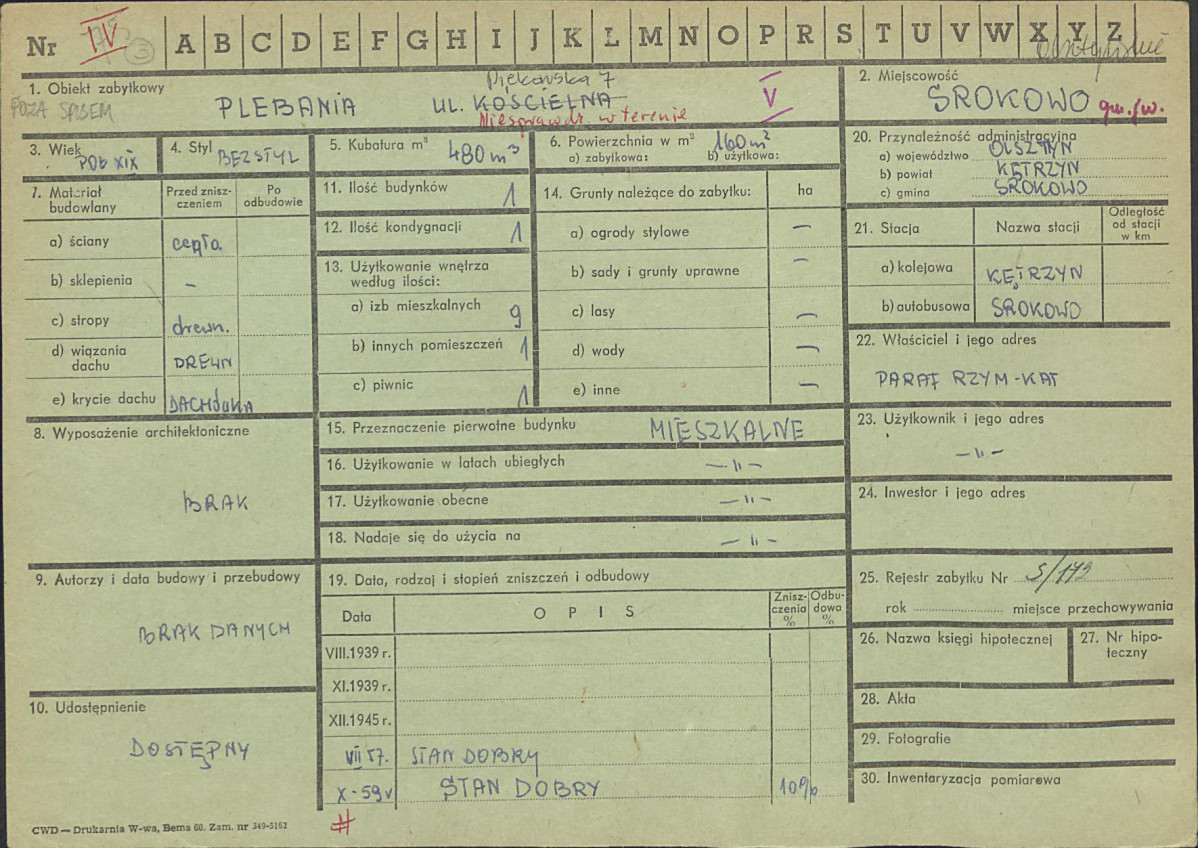 Nr IV 3 A B C D E F G H I J K L M N O P R S T U V W X Y Z
1. Obiekt zabytkowy
POZA SPISEM
PLEBANIA UL. KOŚCIELNA
7
Niesprawdz. w terenie
V
2. Miejscowość
SROKOWO gm. /w.
3. Wiek
POŁ XIX
4. Styl BEZSTYL
5. Kubatura m³ 480 m³
6. Powierzchnia w m² 160 m²
a) zabytkowa: b) użytkowa:
20. Przynależność administracyjna
a) województwo OLSZTYN
b) powiat KĘTRZYN
c) gmina SROKOWO
7. Materiał budowlany
Przed zniszczeniem
Po odbudowie
a) ściany cegła.
b) sklepienia –
c) stropy drewn.
d) wiązania dachu DREWN
e) krycie dachu DACHÓWKA
11. Ilość budynków 1
12. Ilość kondygnacji 1
13. Użytkowanie wnętrza według ilości:
a) izb mieszkalnych 9
b) innych pomieszczeń 1
c) piwnic 1
14. Grunty należące do zabytku: ha
a) ogrody stylowe —
b) sady i grunty uprawne —
c) lasy —
d) wody —
e) inne —
21. Stacja Nazwa stacji Odległość od stacji w km
a) kolejowa KĘTRZYN
b) autobusowa SROKOWO
22. Właściciel i jego adres
PARAF RZYM-KAT
8. Wyposażenie architektoniczne
BRAK
15. Przeznaczenie pierwotne budynku MIESZKALNE
16. Użytkowanie w latach ubiegłych — „ —
17. Użytkowanie obecne — „ —
18. Nadaje się do użycia na — „ —
23. Użytkownik i jego adres
— „ —
24. Inwestor i jego adres
9. Autorzy i data budowy i przebudowy
BRAK DANYCH
19. Data, rodzaj i stopień zniszczeń i odbudowy
Data OPIS Zniszczenia % Odbudowa %
VIII.1939 r.
XI.1939 r.
XII.1945 r.
VII 57. STAN DOBRY
X-59 r STAN DOBRY 10%
25. Rejestr zabytku Nr S/179
rok miejsce przechowywania
26. Nazwa księgi hipotecznej
27. Nr hipoteczny
28. Akta
29. Fotografie
30. Inwentaryzacja pomiarowa
10. Udostępnienie
DOSTĘPNY
CWD — Drukarnia W-wa, Bema 60. Zam. nr 349-5162
#